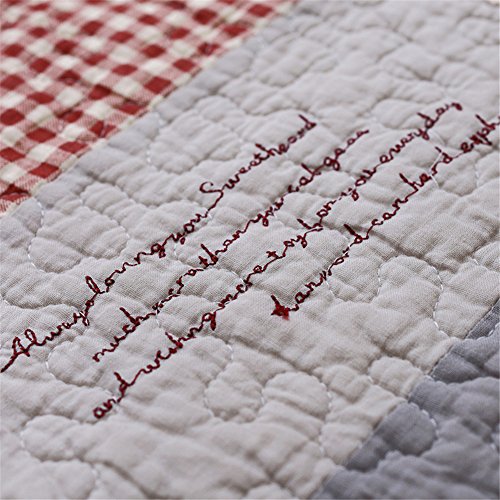 Always loving you Sweatheard
much more than you can guess
and wishing more toy for you everyday
than word can hard exp